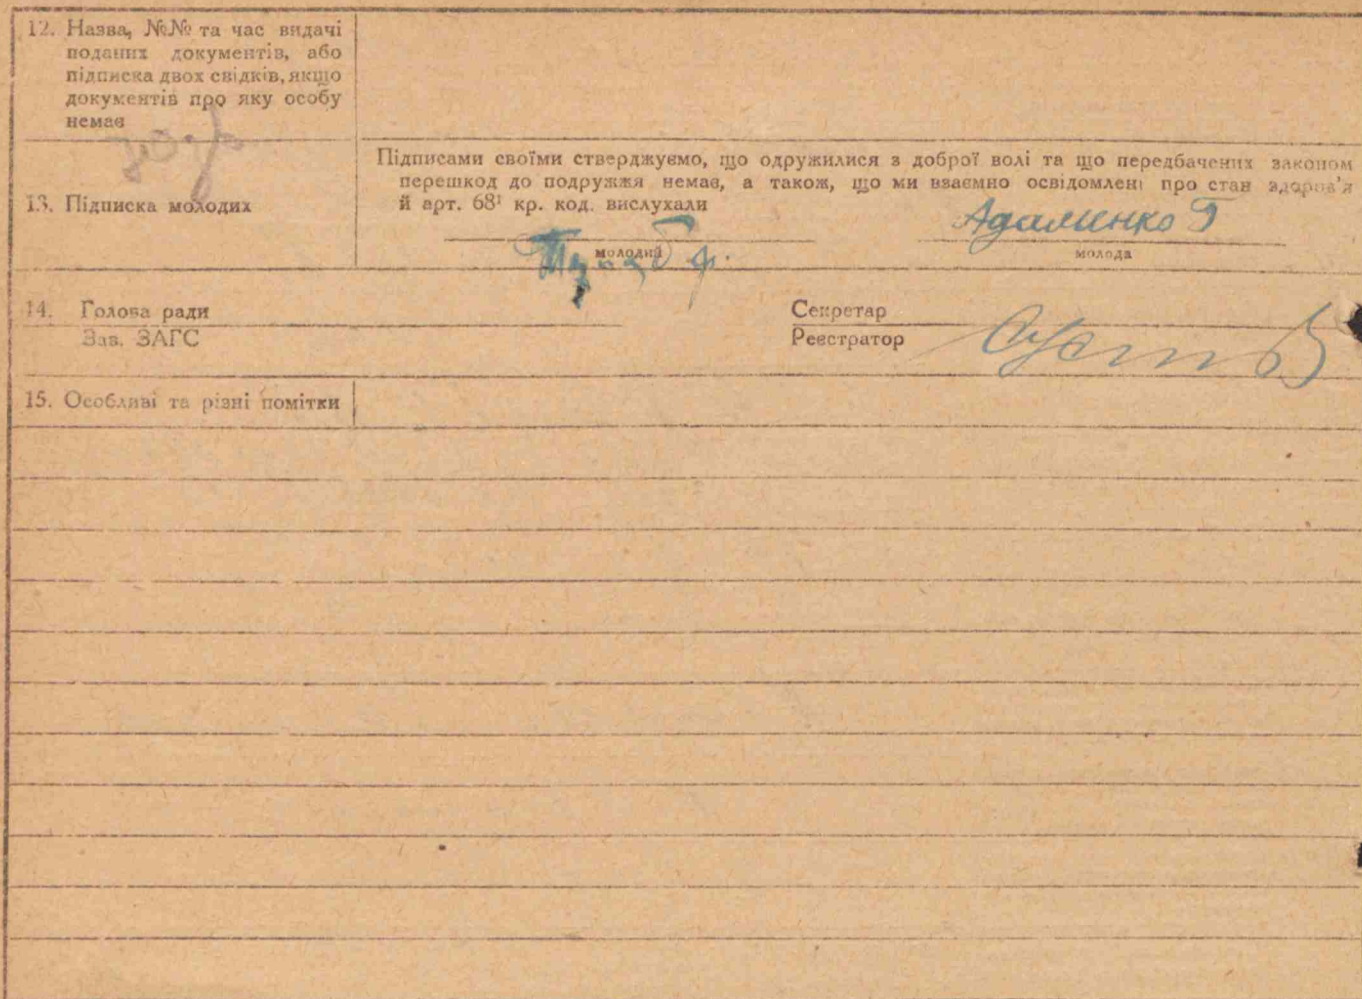 12. Назва, №№ та час видачі
поданих документів, або
підписка двох свідків, якщо
документів про яку особу
немає
Підписами своїми стверджуємо, що одружилися з доброї волі та що передбачених законом
перешкод до подружжя немає, а також, що ми взаємно освідомлені про стан здоров'я
й арт. 68¹ кр. код. вислухали
13. Підписка молодих
Адаменко Г
молодий
молода
14. Голова ради
Секретар
Зав. ЗАГС
Реєстратор
15. Особливі та різні помітки